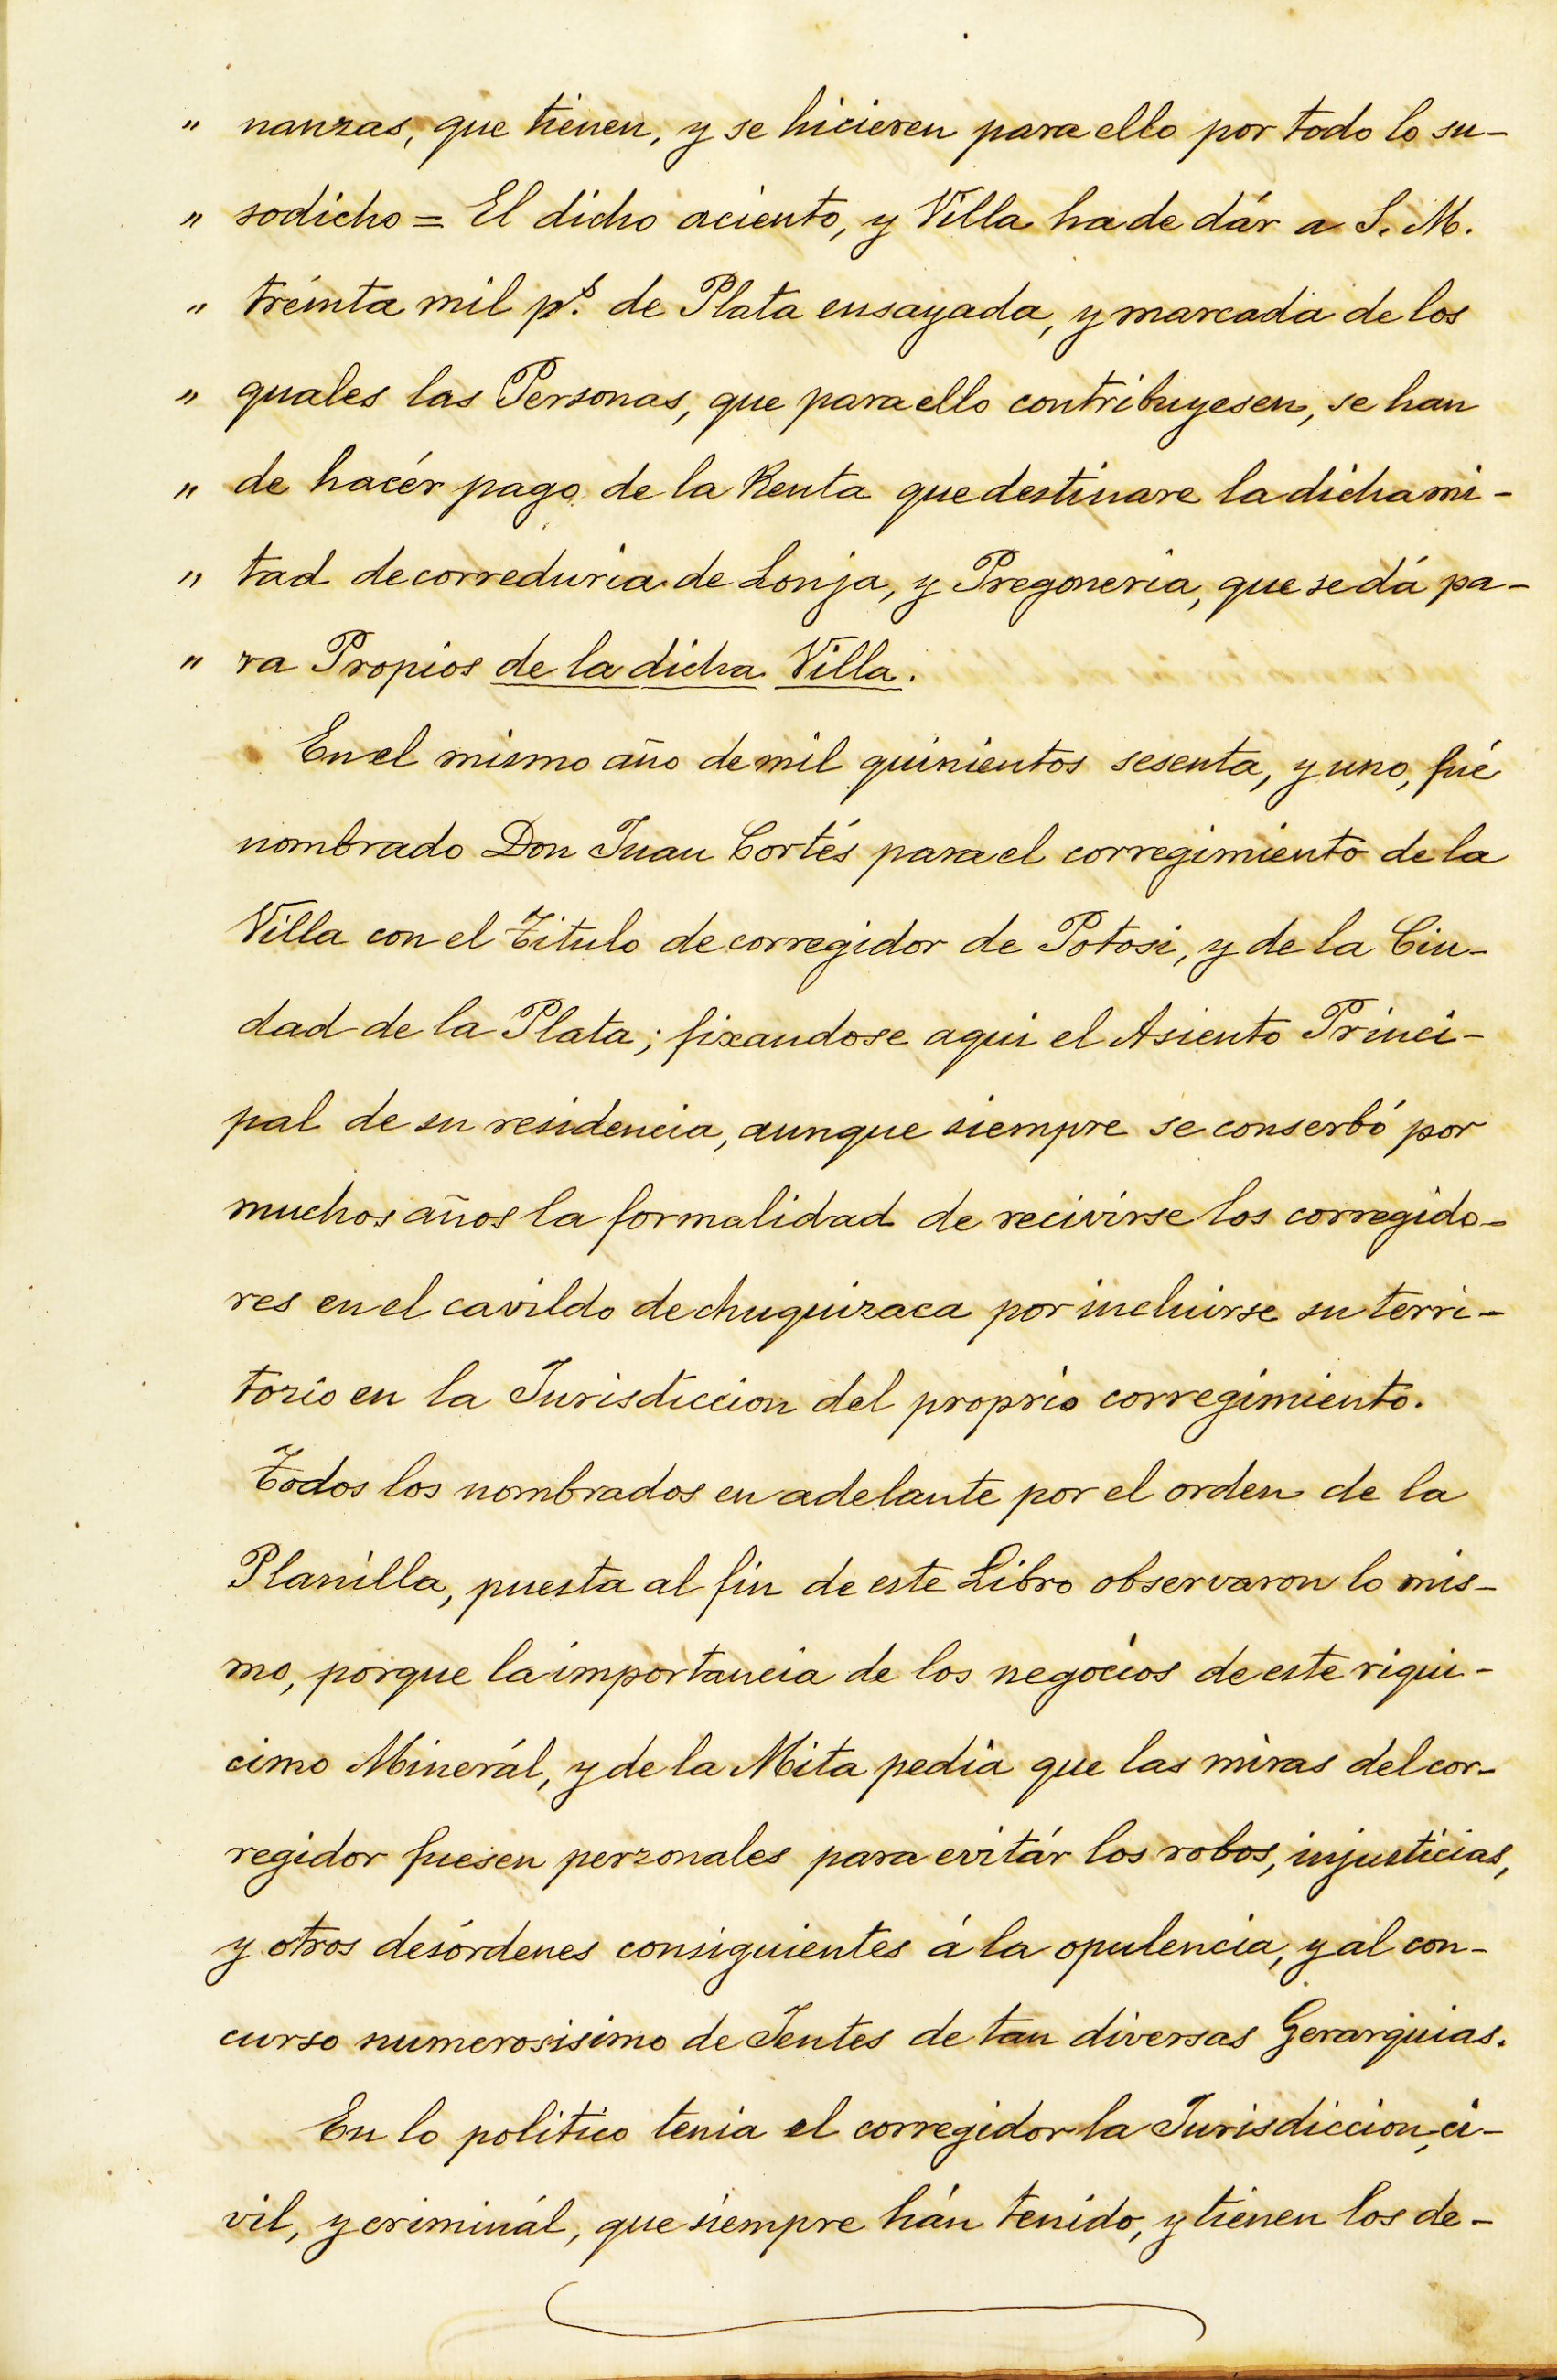 " nanzas, que tienen, y se hicieren para ello por todo lo su-
" sodicho = El dicho aciento, y Villa ha de dár a S. M.
" tréinta mil p.s de Plata ensayada, y marcada de los
" quales las Personas, que para ello contribuyesen, se han
" de hacér pago de la Renta que destinare la dicha mi-
" tad de correduria de Lonja, y Pregoneria, que se dá pa-
" ra Propios de la dicha Villa.
En el mismo año de mil quinientos sesenta, y uno, fué
nombrado Don Juan Cortés para el corregimiento de la
Villa con el Titulo de corregidor de Potosi, y de la Ciu-
dad de la Plata; fixandose aqui el Asiento Princi-
pal de su residencia, aunque siempre se conserbó por
muchos años la formalidad de recivirse los corregido-
res en el cavildo de chuquizaca por incluirse su terri-
torio en la Jurisdiccion del proprio corregimiento.
Todos los nombrados en adelante por el orden de la
Planilla, puesta al fin de este Libro observaron lo mis-
mo, porque la importancia de los negocios de este riqui-
cimo Minerál, y de la Mita pedia que las miras del cor-
regidor fuesen perzonales para evitár los robos, injusticias,
y otros desórdenes consiguientes á la opulencia, y al con-
curso numerosisimo de Jentes de tan diversas Gerarquias.
En lo politico tenia el corregidor la Jurisdiccion, ci-
vil, y criminál, que siempre hán tenido, y tienen los de-